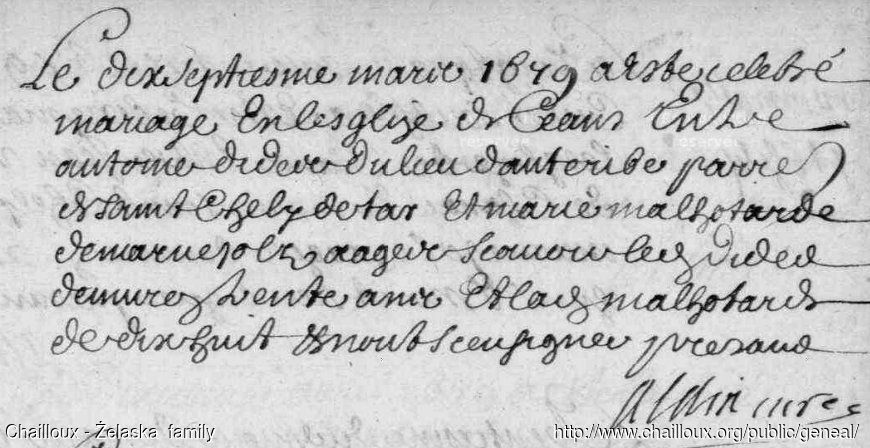 Le dixseptiesme mars 1679 a este celebré
mariage En lesglize de Ceans Entre
antoine didier du lieu dauteribe parre
de saint Chely de tar Et marie malhotarde
de maruejolz aages scavoir led didier
denviron trente ans Et lad malhotarde
de dix huit & nont sceu signer presans
curé
Chailloux - Żelaska family
http://www.chailloux.org/public/geneal/